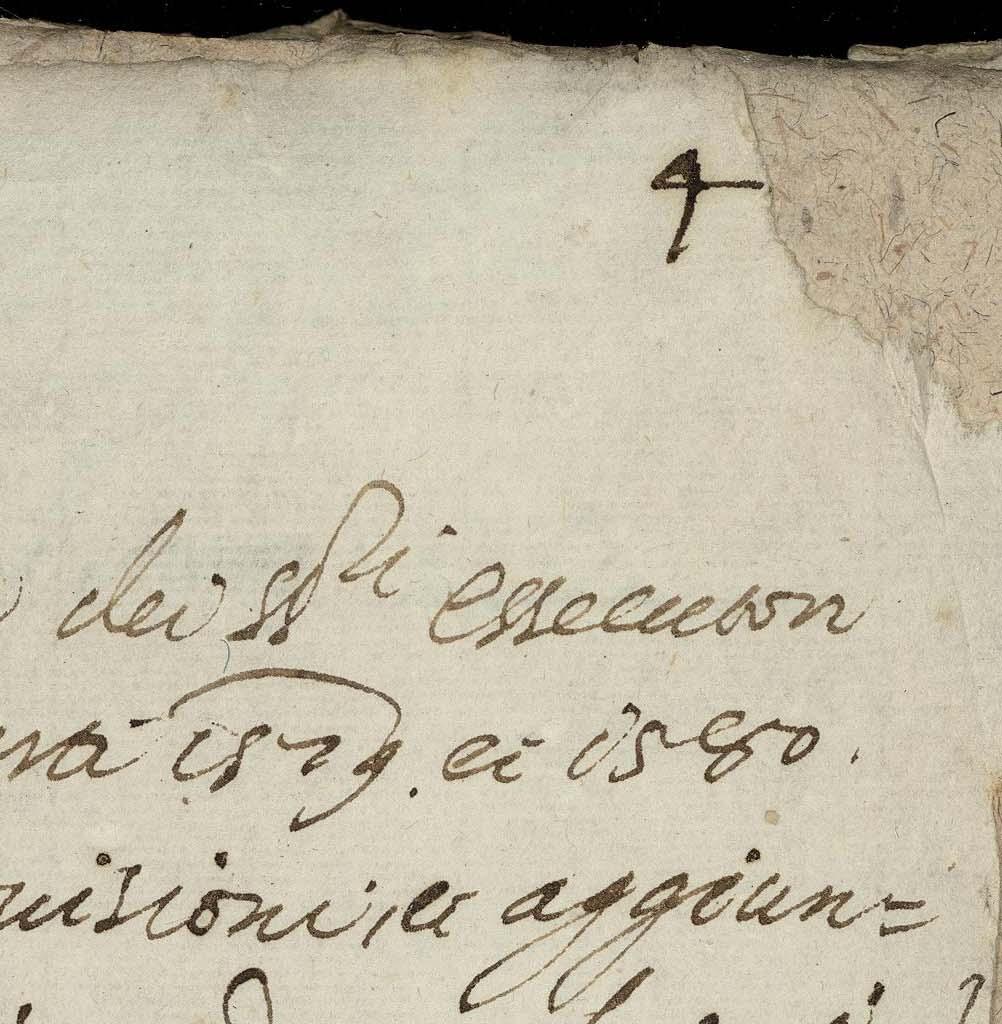 4
dei ss.ri essecutori
1579. et 1580.
uisioni, et aggiun=